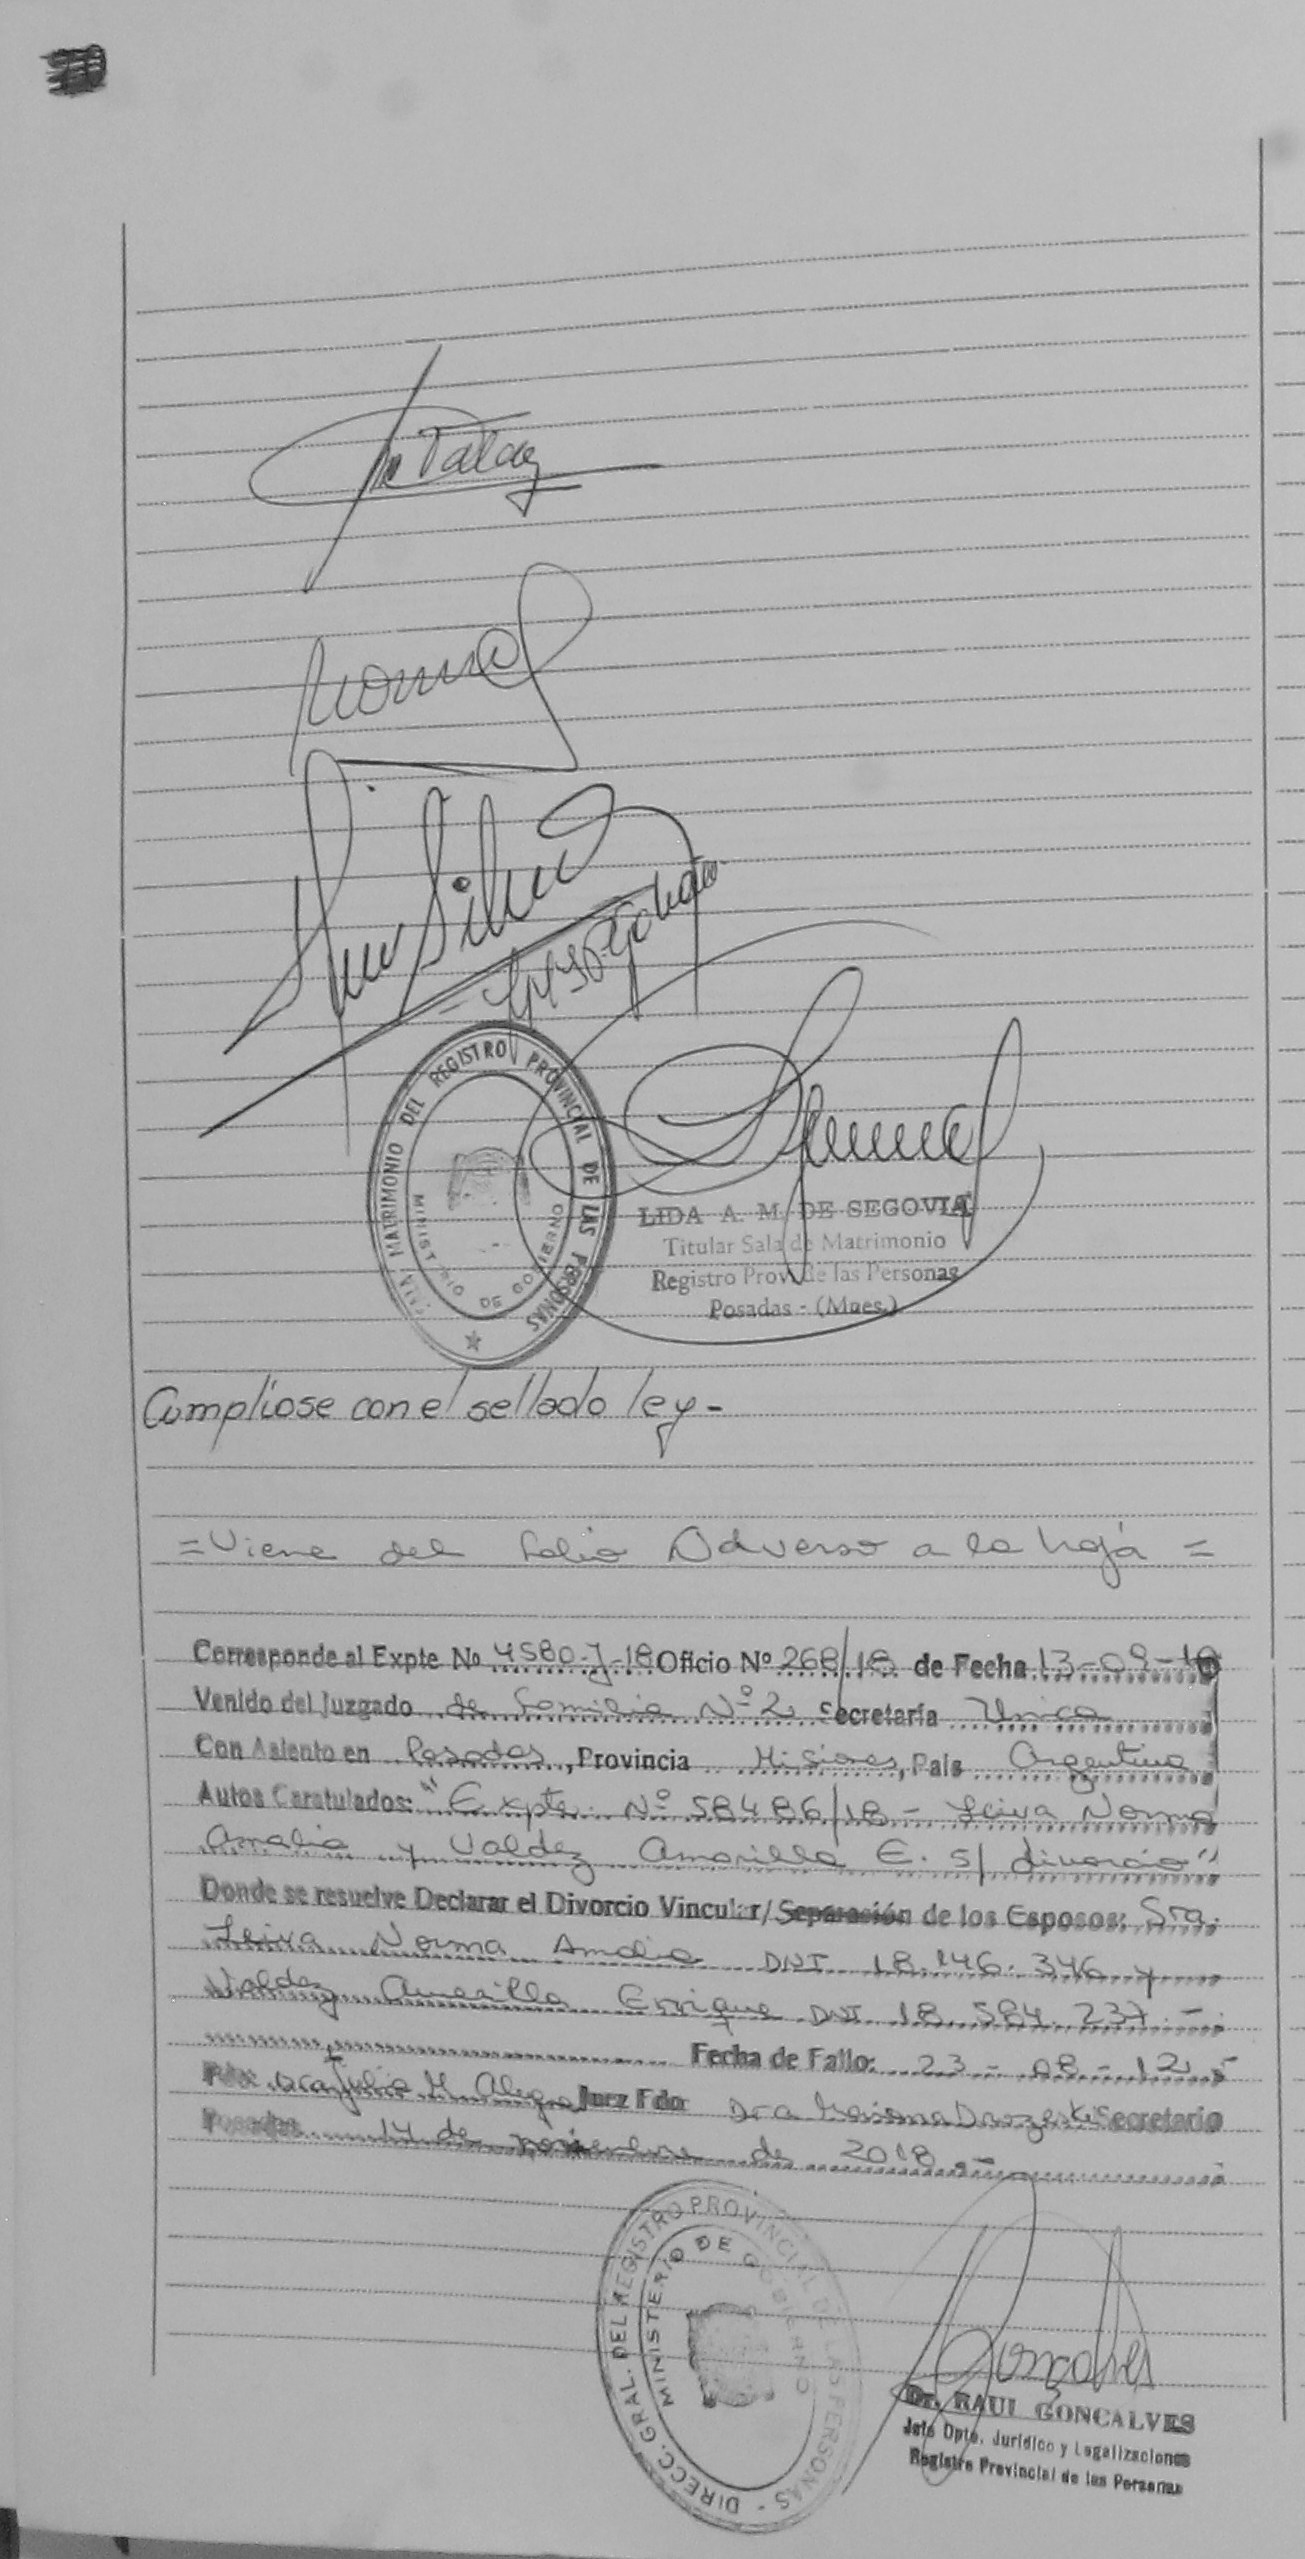 Valdez
Norma
Silva
SALA MATRIMONIO DEL REGISTRO PROVINCIAL DE LAS PERSONAS
MINISTERIO DE GOBIERNO
LIDA A. M. DE SEGOVIA
Titular Sala de Matrimonio
Registro Prov. de las Personas
Posadas - (Mnes.)
Cumpliose con el sellado ley -
= Viene del folio Adverso a la hoja =
Corresponde al Expte No 4580-J-18 Oficio Nº 268/18 de Fecha 13-09-18
Venido del Juzgado de Familia Nº 2 Secretaría Unica
Con Asiento en Posadas, Provincia Misiones, País Argentina
Autos Caratulados: "Expte. Nº 58486/18 - Leiva Norma
Amalia y Valdez Amarilla E. s/ divorcio"
Donde se resuelve Declarar el Divorcio Vincular/Separación de los Esposos: Sra.
Leiva Norma Amalia DNI 18.146.346 y
Valdez Amarilla Enrique DNI 18.584.237.-
Fecha de Fallo: 23-08-12.-
Fdo: Dra Julia M. Alegre Juez Fdo: Dra Mariana Secretario
Posadas 14 de de 2018.-
DIRECC. GRAL. DEL REGISTRO PROVINCIAL DE LAS PERSONAS
MINISTERIO DE GOBIERNO
Gonçalves
Dr. RAUL GONCALVES
Jefe Dpto. Jurídico y Legalizaciones
Registro Provincial de las Personas